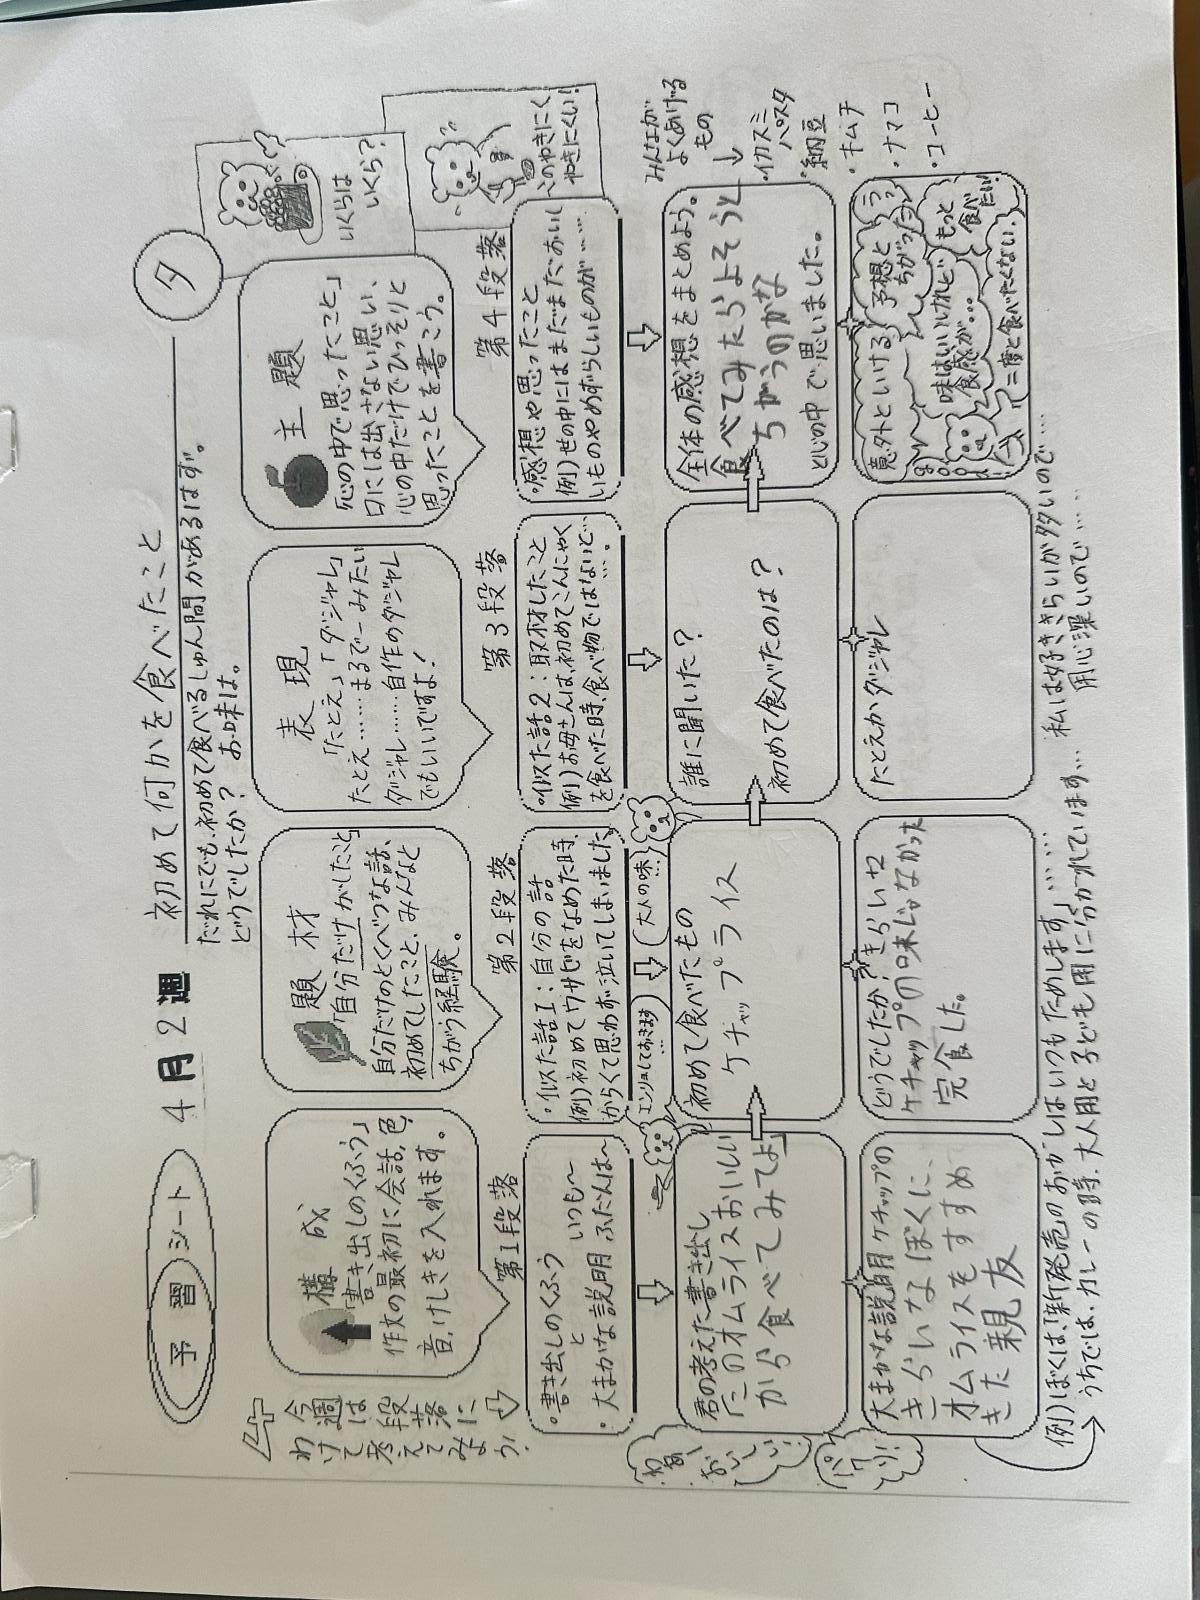 予習シート
4月2週
初めて何かを食べたこと
タ
だれにでも、初めて食べるしゅん間があるはず。
どうでしたか? お味は。
いくらは
いくら?
このやきにく
やきにくい!
今週は段落に
わけて考えてみよう!
構成
「書き出しのくふう」
作文の最初に会話、色、
音、けしきを入れます。
題材
「自分だけがしたこと」
自分だけのとくべつな話、
初めてしたこと、みんなと
ちがう経験。
表現
「たとえ」「ダジャレ」
たとえ……まるで〜みたい
ダジャレ……自作のダジャレ
でもいいですよ!
主題
「心の中で思ったこと」
口には出さない思い、
心の中だけでひっそりと
思ったことを書こう。
第1段落
・書き出しのくふう
と
・大まかな説明
いつも〜
ふだんは〜
第2段落
・似た話1:自分の話
例)初めてワサビをなめた時、
からくて思わず泣いてしまいました
第3段落
・似た話2:取材したこと
例)お母さんは、初めてこんにゃく
を食べた時、食べ物ではないと…
第4段落
・感想や思ったこと
例)世の中にはまだまだおいし
いものやめずらしいものが……
エンリョしておきます
大人の味…
君の考えた書き出し
「このオムライスおいしい
から食べてみてよ」
初めて食べたもの
ケチャップライス
誰に聞いた?
初めて食べたのは?
全体の感想をまとめよう。
食べてみたらよそうと
ちがうのかな
と心の中で思いました。
みんなが
よくあげる
もの
・イカスミ
パスタ
・納豆
・キムチ
・ナマコ
・コーヒー
わあー
おいしい!
パクリ!
大まかな説明 ケチャップの
きらいなぼくに、
オムライスをすすめ
きた親友
どうでしたか?きらいな
ケチャップの味じゃなかった
完食した。
たとえかダジャレ
意外といける!
予想と
ちがった…
味はいいけれど
食感が…
もっと
食べたい!
二度と食べたくない。
例)ぼくは、「新発売のおかしはいつもためします」……
うちでは、カレーの時、大人用と子ども用に分かれています…
私は好ききらいが多いので…
用心深いので……